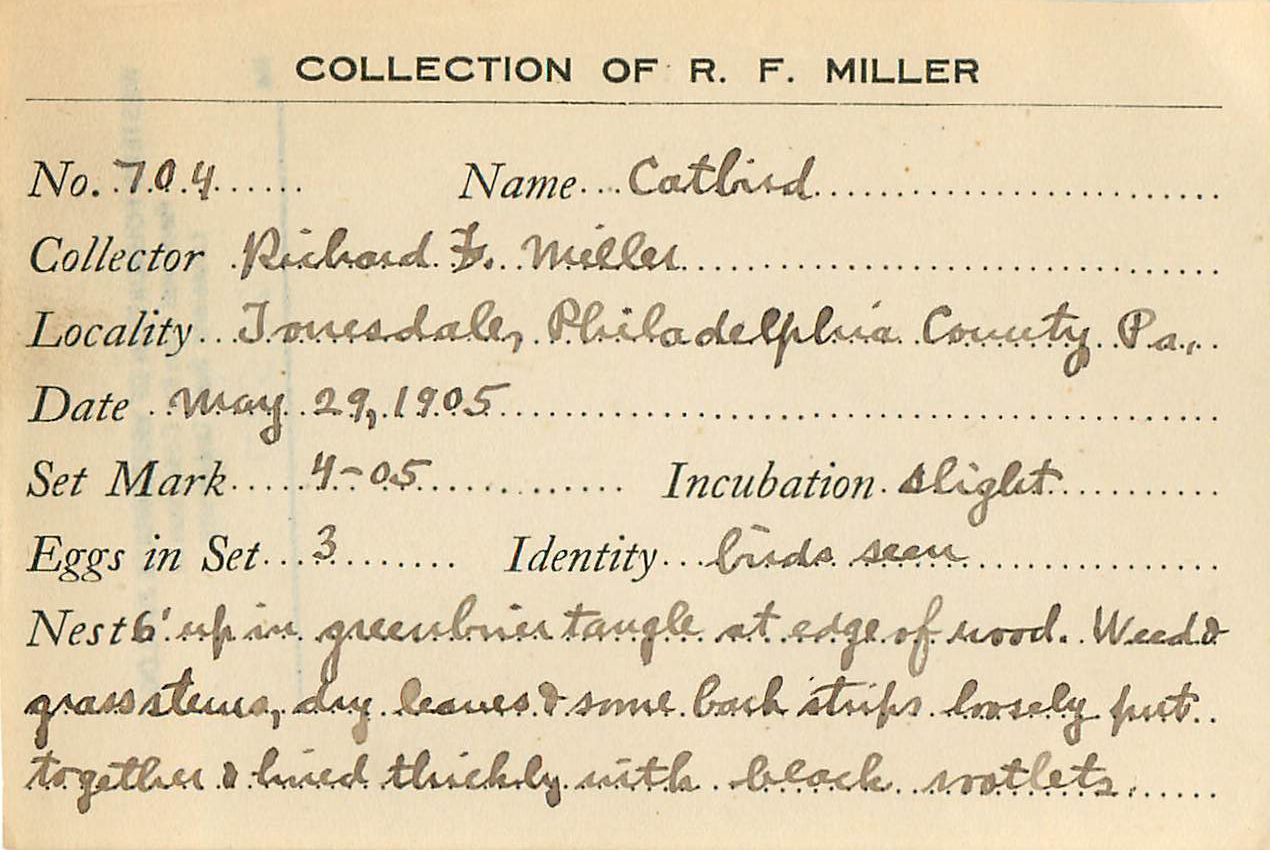 COLLECTION OF R. F. MILLER
No. 704 Name Catbird
Collector Richard F. Miller
Locality Tonesdale, Philadelphia County Pa.
Date May 29, 1905
Set Mark 4-05 Incubation slight
Eggs in Set 3 Identity birds seen
Nest 6' up in greenbrier tangle at edge of wood. Weed &
grass stems, dry leaves & some bark strips loosely put
together & lined thickly with black rootlets.